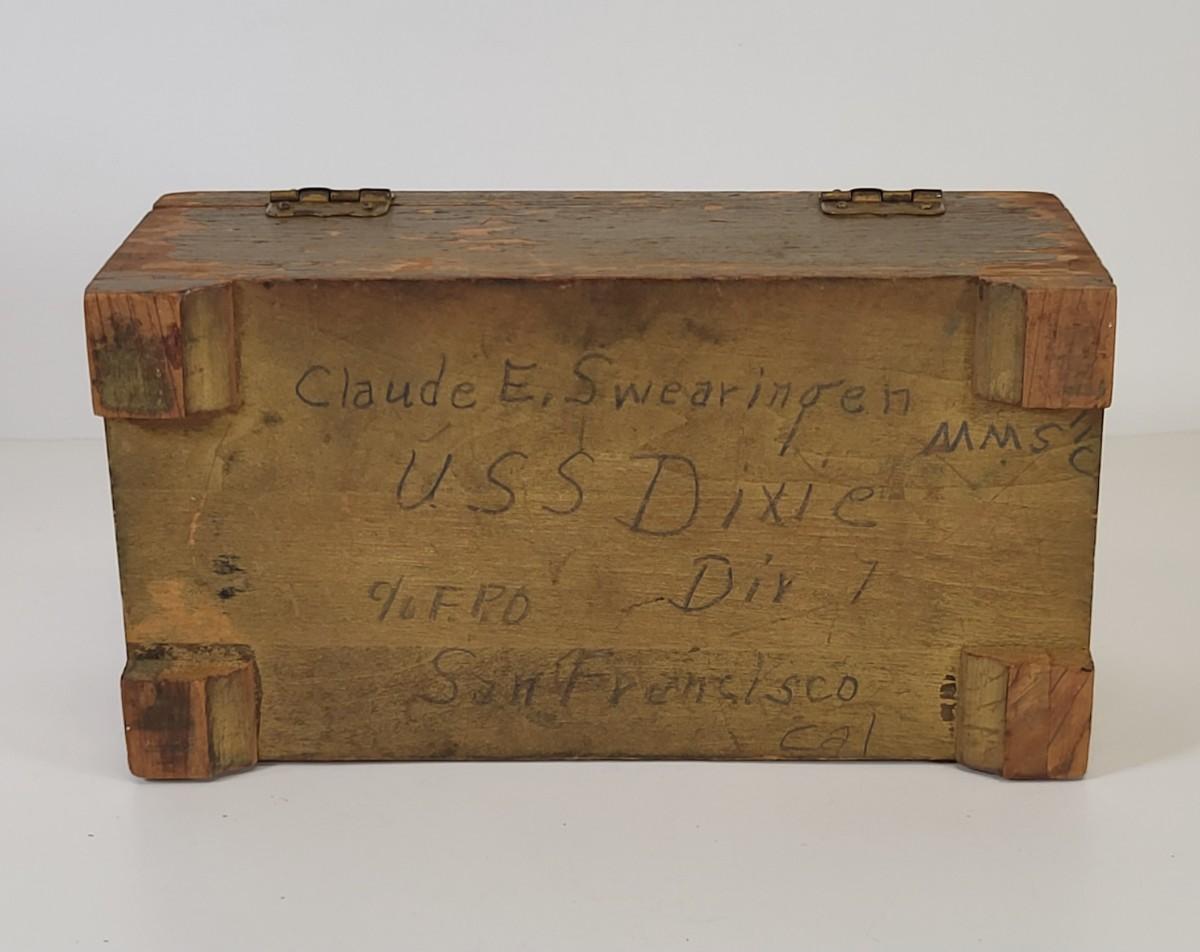 Claude E. Swearingen
MMS 2/C
USS Dixie
Div 1
% F.P.O
San Francisco
Cal